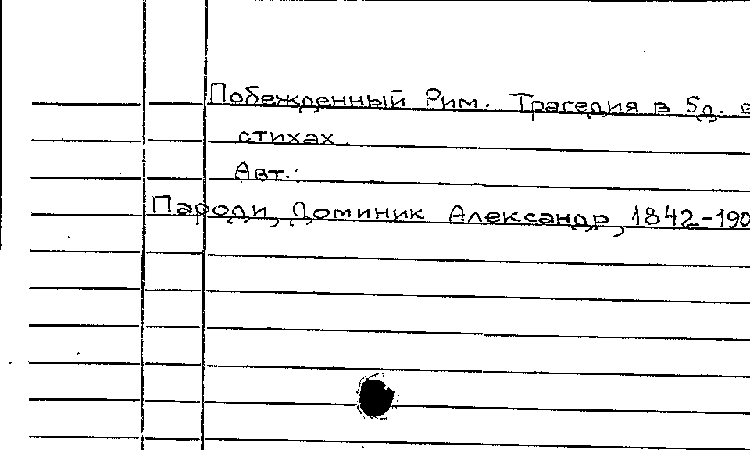 Побежденный Рим. Трагедия в 5д. в
стихах.
Авт.:
Пароди, Доминик Александр, 1842-190